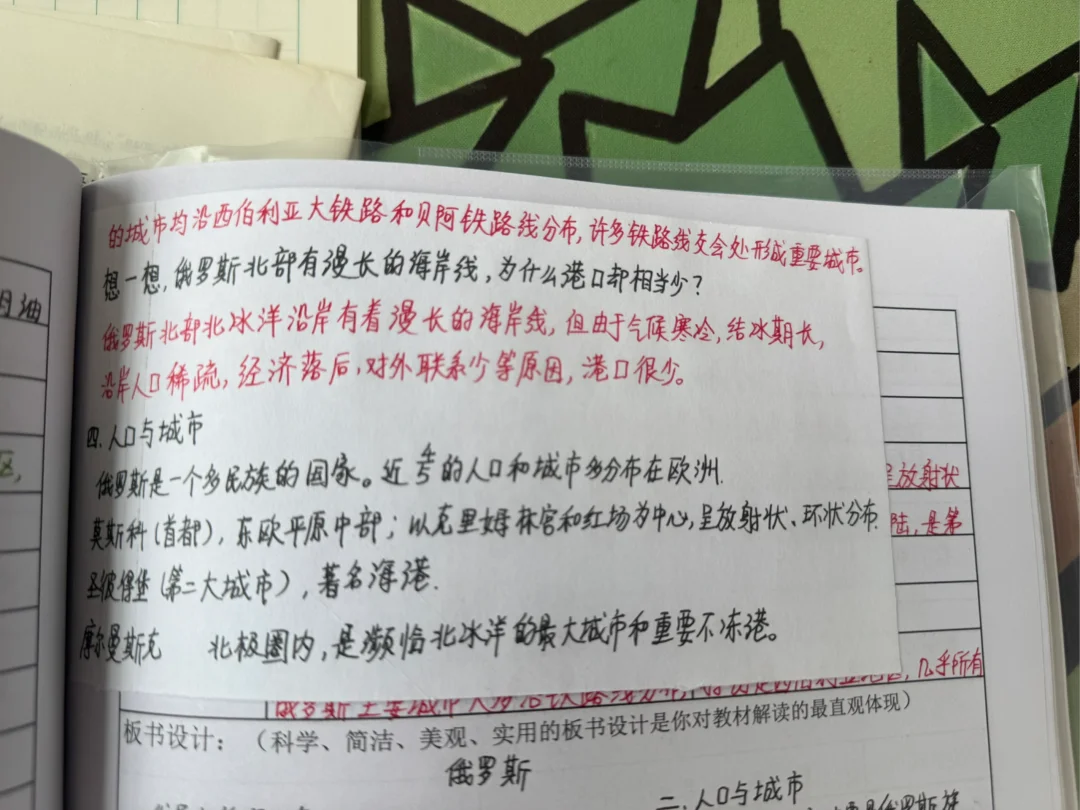 的城市均沿西伯利亚大铁路和贝阿铁路线分布,许多铁路线交会处形成重要城市。
想一想,俄罗斯北部有漫长的海岸线,为什么港口却相当少?
俄罗斯北部北冰洋沿岸有着漫长的海岸线,但由于气候寒冷,结冰期长,
沿岸人口稀疏,经济落后,对外联系少等原因,港口很少。
四.人口与城市
俄罗斯是一个多民族的国家。近4/5的人口和城市多分布在欧洲.
莫斯科(首都),东欧平原中部;以克里姆林宫和红场为中心,呈放射状、环状分布.
圣彼得堡(第二大城市),著名海港.
摩尔曼斯克 北极圈内,是濒临北冰洋的最大城市和重要不冻港。
月油
区,
呈放射状
陆,是第
几乎所有
板书设计:(科学、简洁、美观、实用的板书设计是你对教材解读的最直观体现)
俄罗斯
二.人口与城市